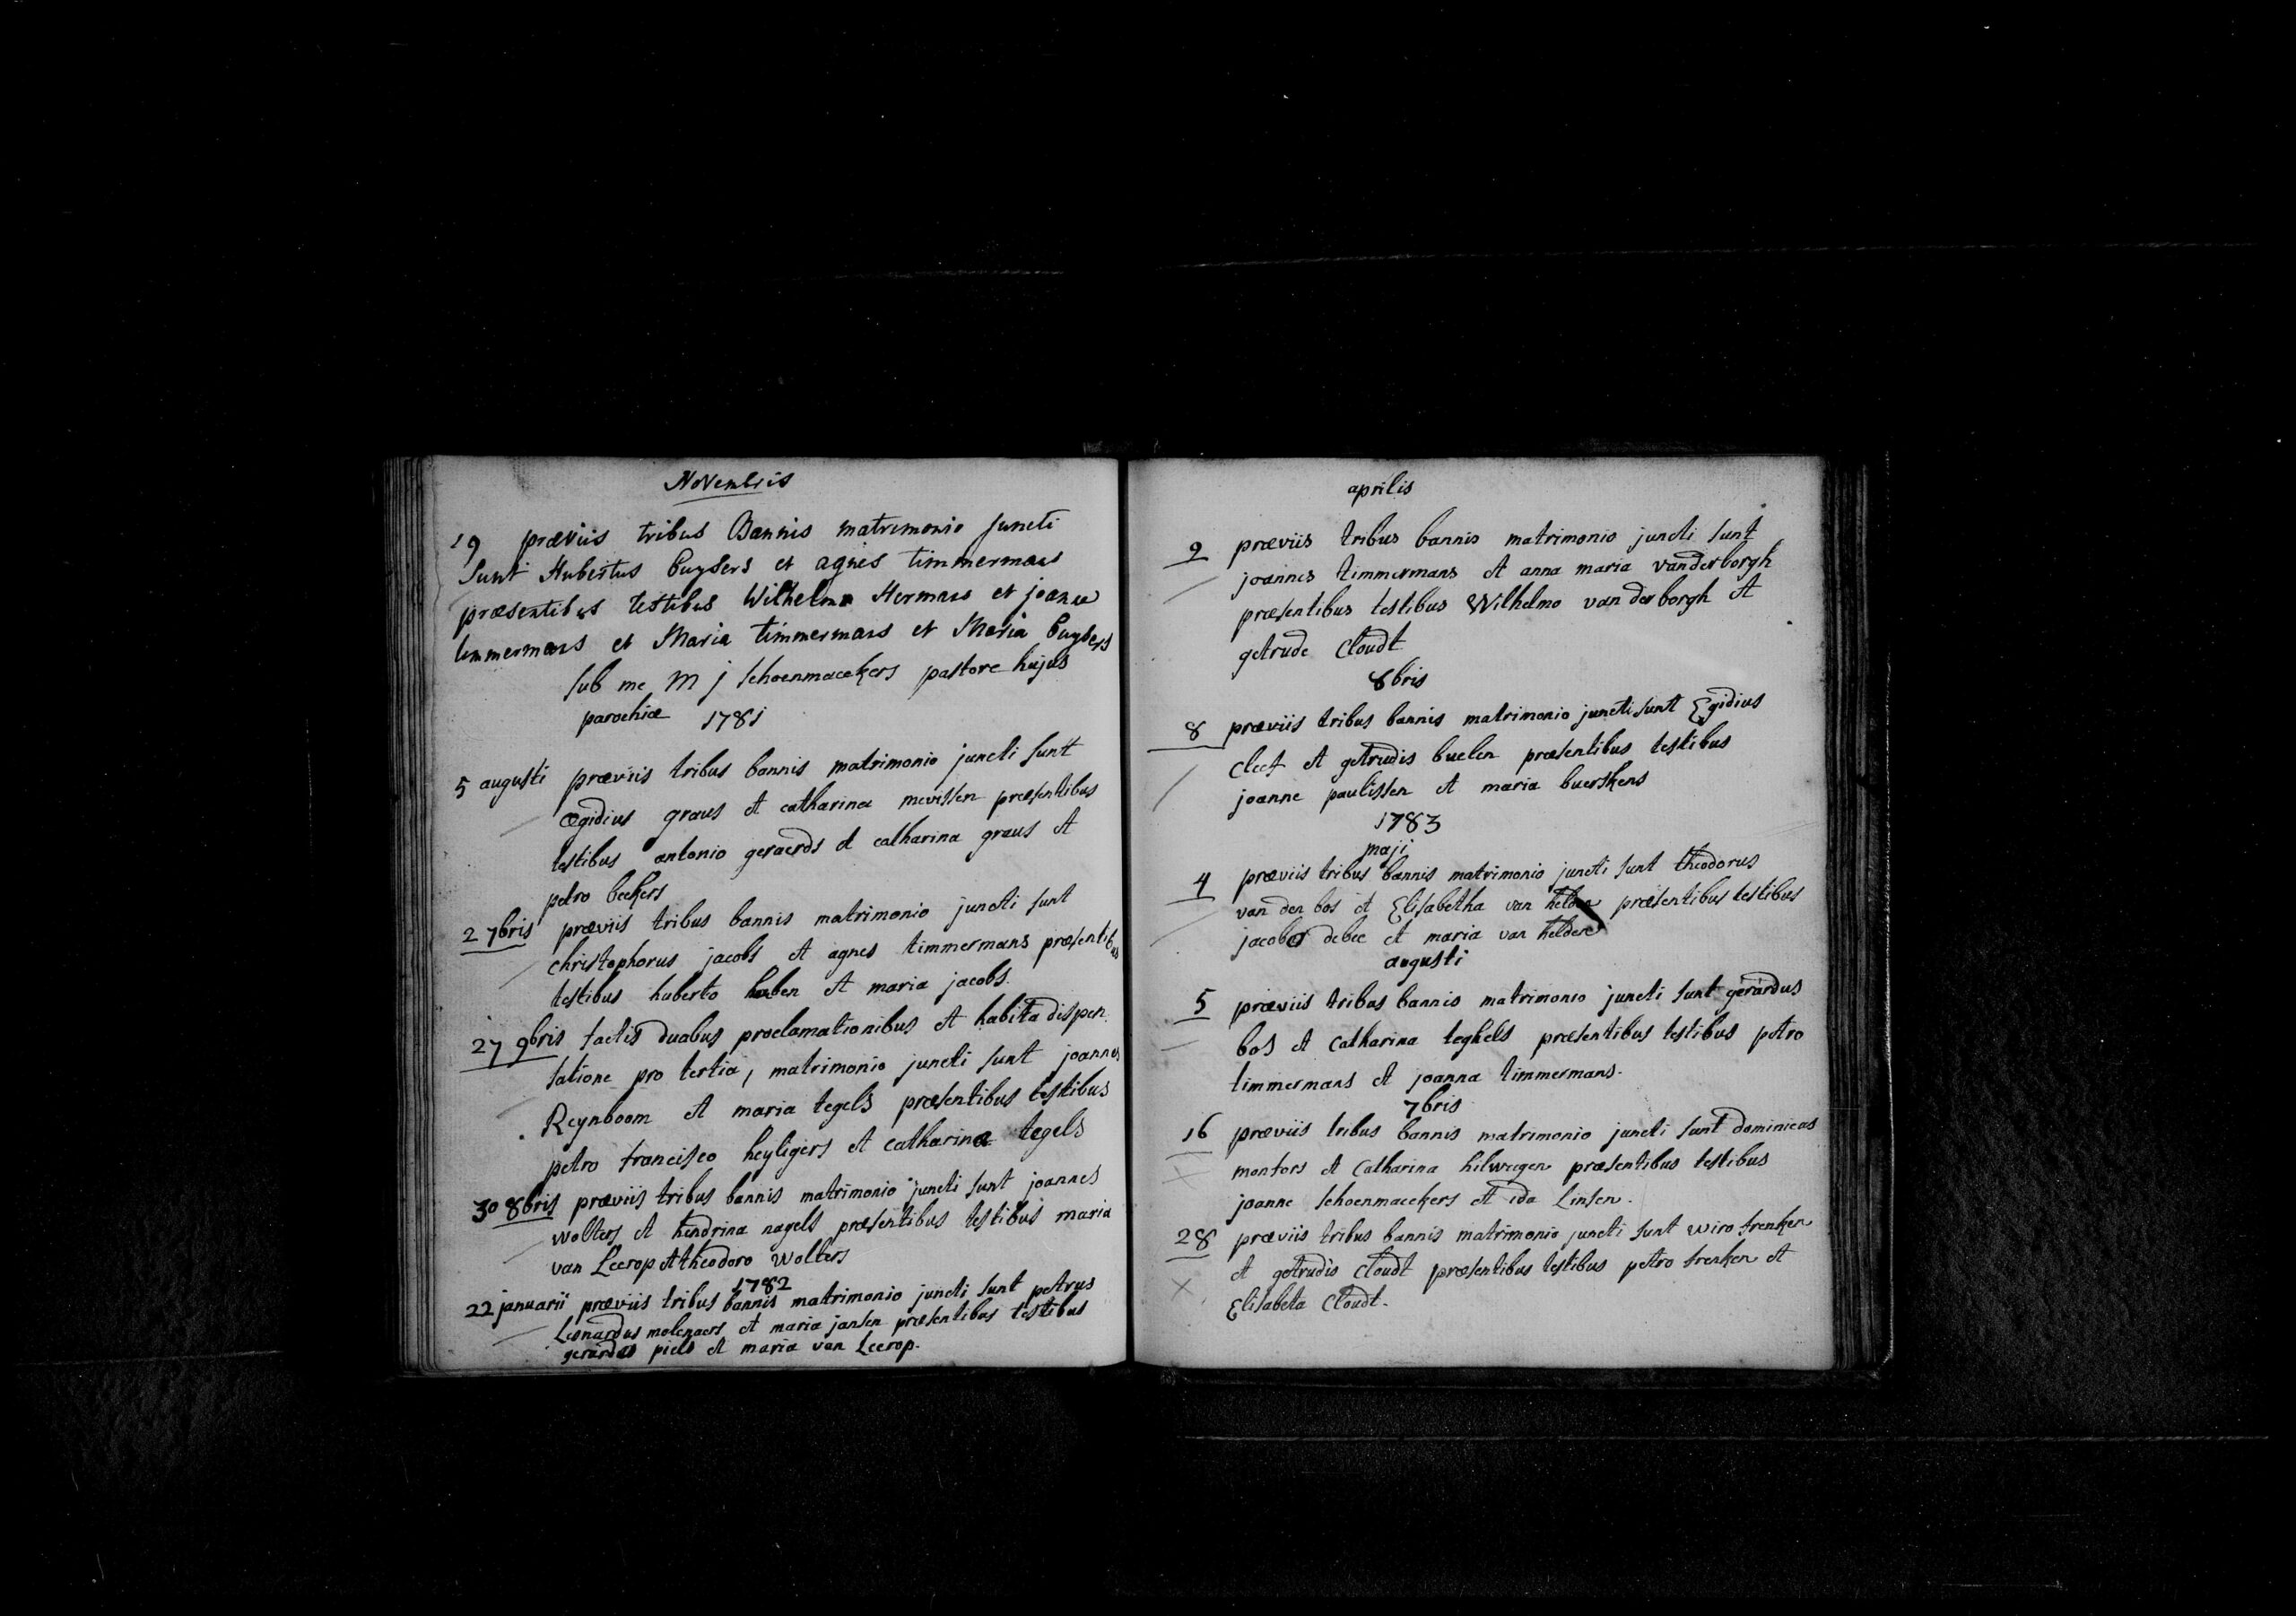 Novembris
19 præviis tribus Bannis matrimonio Juncti
Sunt Hubertus Cuypers et agnes timmermans
præsentibus testibus Wilhelmo Hermans et joanne
timmermans et Maria timmermans et Maria Cuypers
sub me M j schoenmaeckers pastore hujus
parochiæ 1781
5 augusti præviis tribus bannis matrimonio juncti sunt
ægidius graus et catharina mevissen præsentibus
testibus antonio geraerds et catharina graus et
petro beckers
2 7bris præviis tribus bannis matrimonio juncti sunt
christophorus jacobs et agnes timmermans præsentibus
testibus huberto huben et maria jacobs.
27 9bris factis duabus proclamationibus et habita dispen
satione pro tertia, matrimonio juncti sunt joannes
Reynboom et maria tegels præsentibus testibus
petro francisco heyligers et catharina tegels
30 8bris præviis tribus bannis matrimonio juncti sunt joannes
wolters et hendrina nagels præsentibus testibus maria
van Leerop et theodoro wolters
1782
22 januarii præviis tribus bannis matrimonio juncti sunt petrus
Leonardus molenaers et maria jansen præsentibus testibus
gerardus piels et maria van Leerop.
aprilis
9 præviis tribus bannis matrimonio juncti sunt
joannes timmermans et anna maria vanderborgh
præsentibus testibus Wilhelmo van der borgh et
getrude Cloudt
8bris
8 præviis tribus bannis matrimonio juncti sunt Egidius
cleef et getrudis buelen præsentibus testibus
joanne paulissen et maria buerskens
1783
maji
4 præviis tribus bannis matrimonio juncti sunt theodorus
van den bos et Elisabetha van helden præsentibus testibus
jacobo debee et maria van helden
augusti
5 præviis tribus bannis matrimonio juncti sunt gerardus
bos et Catharina teghels præsentibus testibus petro
timmermans et joanna timmermans.
7bris
16 præviis tribus bannis matrimonio juncti sunt dominicus
montors et Catharina hilwegen præsentibus testibus
joanne schoenmaeckers et ida Linsen.
28 præviis tribus bannis matrimonio juncti sunt wiro frenken
et getrudis Cloudt præsentibus testibus petro frenken et
Elisabeta Cloudt.